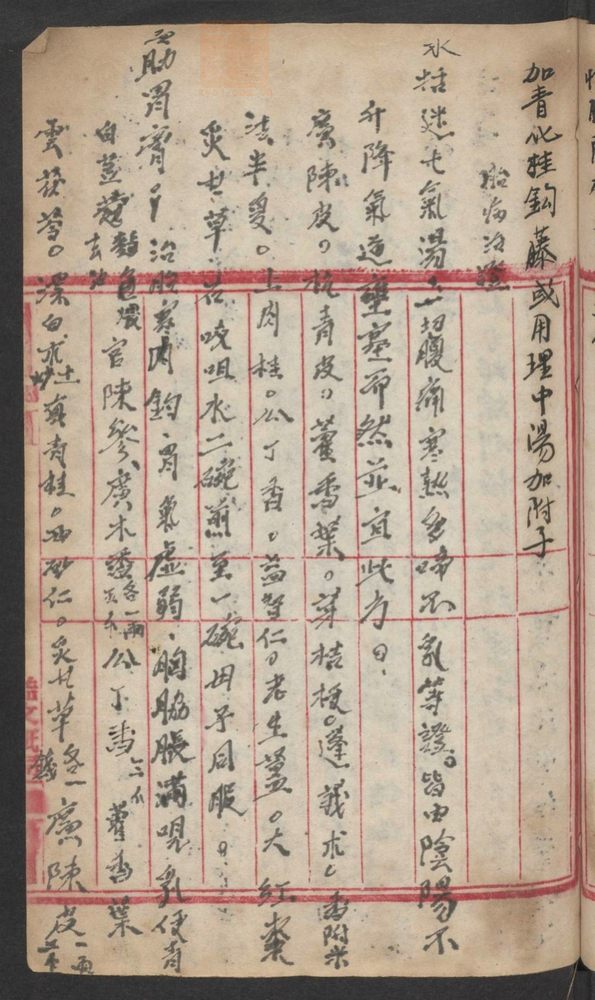 加青化桂鈎藤或用理中湯加附子
胎病治證
木括迷七氣湯 一切腹痛寒熱多啼不乳等證。皆由陰陽不
升降氣道壅塞而然並宜此方。
廣陳皮 杭青皮 藿香葉。芽桔梗。蓬莪朮 香附米
法半夏。上肉桂。公丁香。益智仁 老生薑。大紅棗
炙甘草 右㕮咀水二碗煎至一碗母子同服
助胃膏 治胎寒內釣胃氣虛弱。胸脇脹滿哯乳便青
白荳蔻 去油 色煨 官陳參 廣木 各一兩 公丁香 三分 藿香葉
雲茯苓。漂白朮 土炒 真青桂。西砂仁。炙甘草 各一錢 廣陳皮 一兩